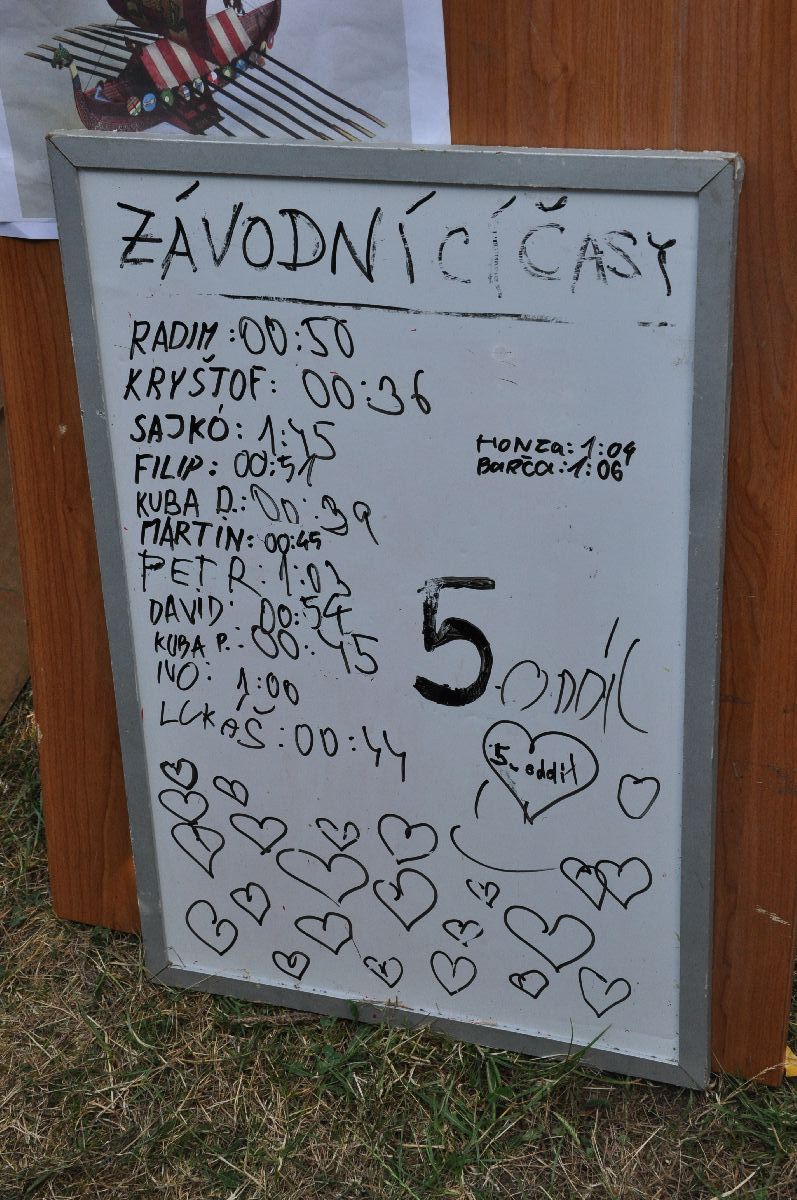 ZÁVODNÍCÍ ČASY
RADIM: 00:50
KRYŠTOF: 00:36
SAJKÓ: 1:45
FILIP: 00:51
KUBA D.: 00:39
MARTIN: 00:45
PETR: 1:03
DAVID: 00:54
KUBA P.: 00:45
IVO: 1:00
LUKÁŠ: 00:44
HONZA: 1:04
BARČA: 1:06
5. ODDÍL
5. oddíl